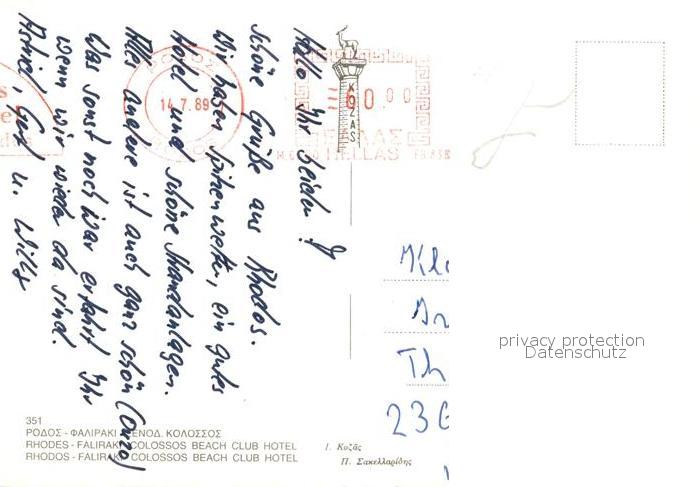 Hallo Ihr beiden!
schöne Grüße aus Rhodos.
Wir haben Spitzenwetter, ein gutes
Hotel und schöne Strandanlagen.
Alles andere ist auch ganz schön (Ouzo)
Was sonst noch war erfahrt Ihr
wenn wir wieder da sind.
Astrid, Gerd u. Willy
ΡΟΔΟΣ
14.7.89
60.00
ΕΛΛΑΣ
HELLAS
KOZAS
Th
236
privacy protection
Datenschutz
351
ΡΟΔΟΣ - ΦΑΛΙΡΑΚΙ ΞΕΝΟΔ. ΚΟΛΟΣΣΟΣ
RHODES - FALIRAKI COLOSSOS BEACH CLUB HOTEL
RHODOS - FALIRAKI COLOSSOS BEACH CLUB HOTEL
Ι. Κοζᾶς
Π. Σακελλαρίδης